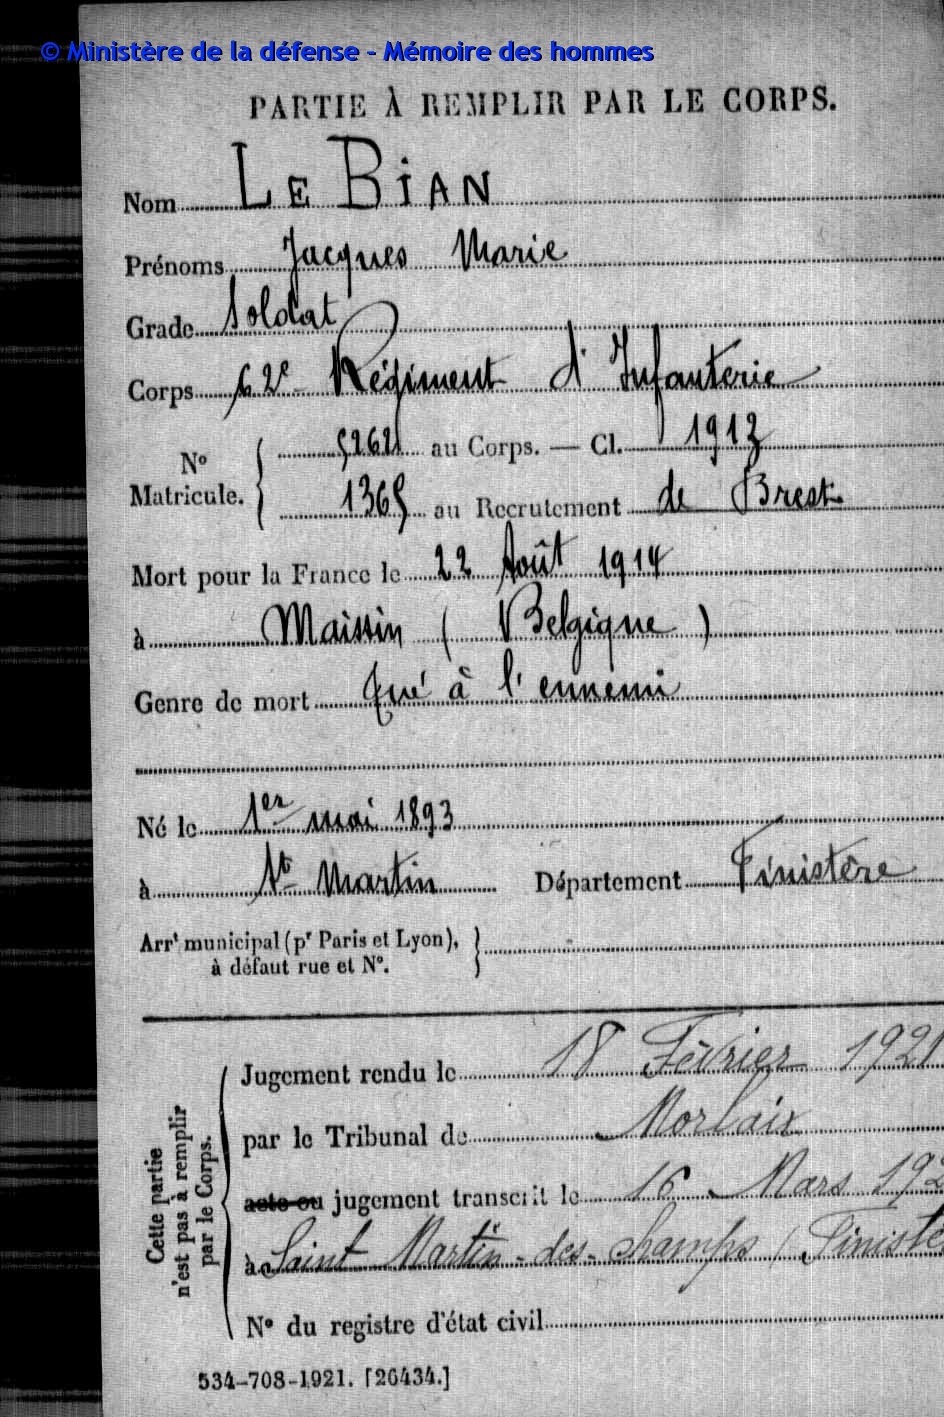 © Ministère de la défense - Mémoire des hommes
PARTIE À REMPLIR PAR LE CORPS.
Nom LE BIAN
Prénoms Jacques Marie
Grade Soldat
Corps 62e Régiment d'Infanterie
No Matricule. { 5262 au Corps. — Cl. 1913
1365 au Recrutement de Brest
Mort pour la France le 22 Août 1914
à Maissin (Belgique)
Genre de mort tué à l'ennemi
Né le 1er mai 1893
à St Martin Département Finistère
Arrt municipal (pr Paris et Lyon),
à défaut rue et No.
Cette partie
n'est pas à remplir
par le Corps.
Jugement rendu le 18 Février 1921
par le Tribunal de Morlaix
acte ou jugement transcrit le 16 Mars 192
à Saint Martin-des-Champs (Finistè
No du registre d'état civil
534-708-1921. [26434.]